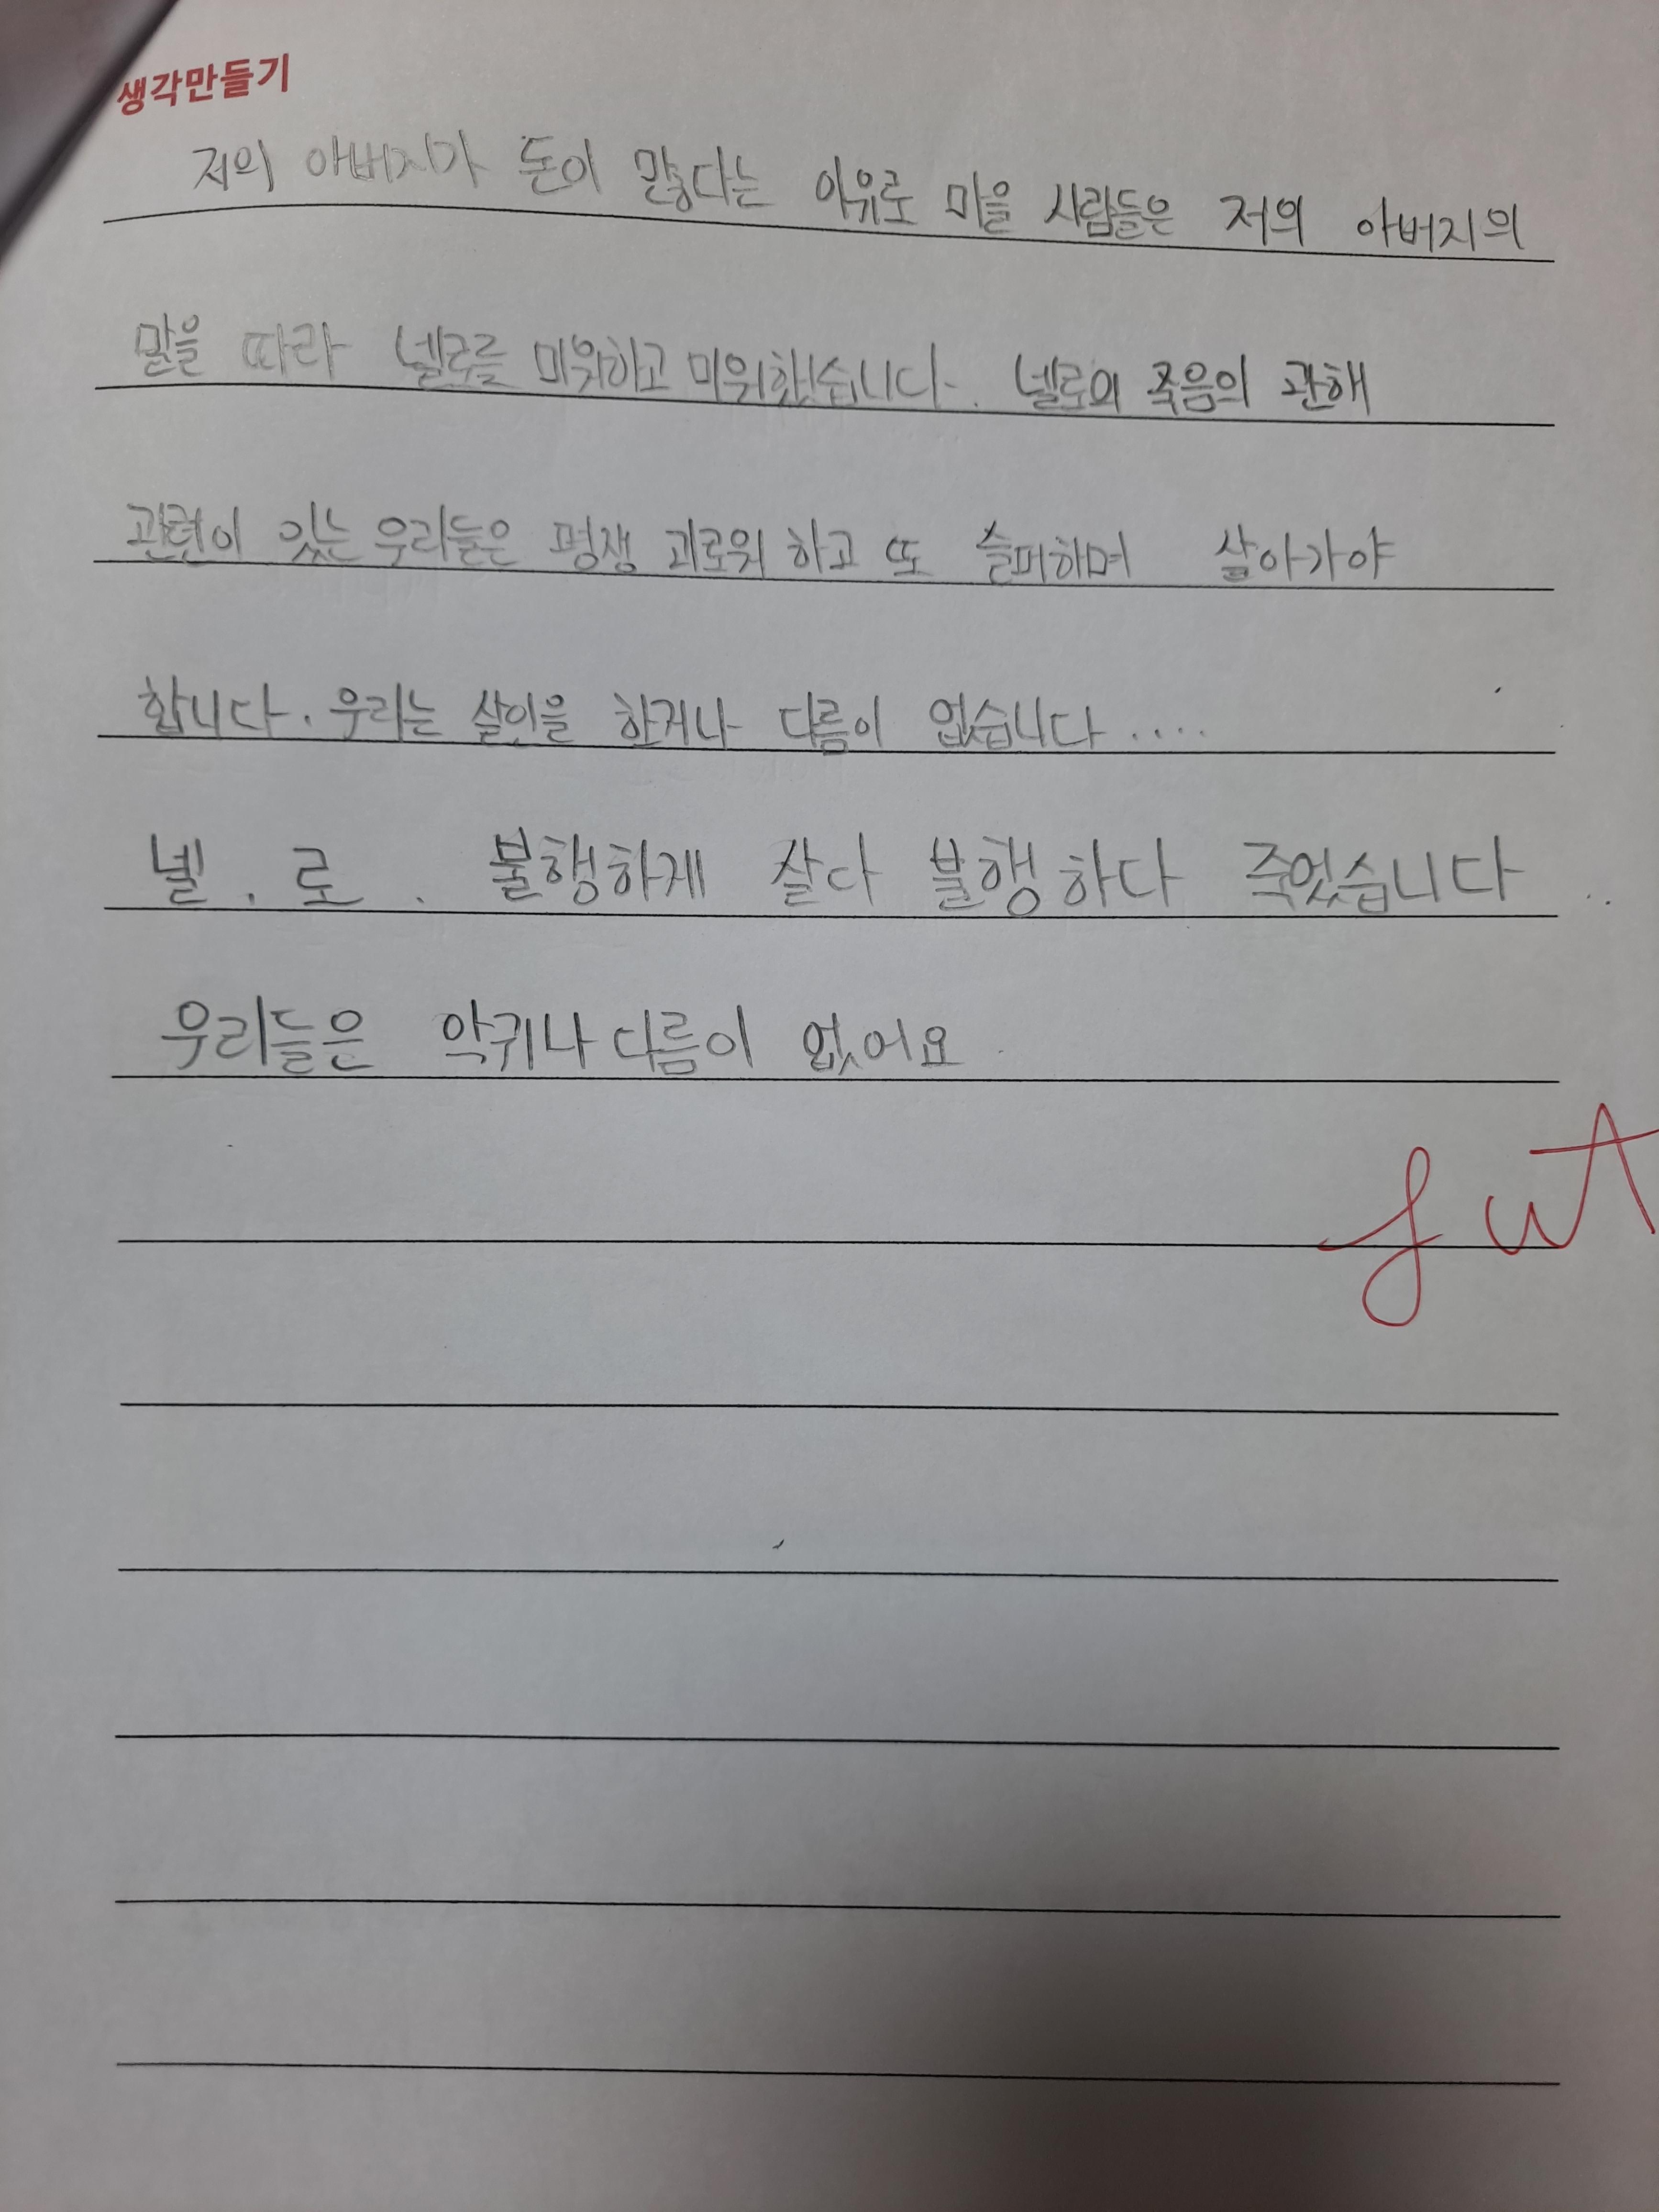 생각만들기
저의 아버지가 돈이 많다는 이유로 마을 사람들은 저의 아버지의
말을 따라 넬로를 미워하고 미워했습니다. 넬로의 죽음의 관해
관련이 있는 우리들은 평생 괴로워 하고 또 슬퍼하며 살아가야
합니다. 우리는 살인을 한거나 다름이 없습니다....
넬.로. 불행하게 살다 불행하다 죽었습니다..
우리들은 악귀나 다름이 없어요.